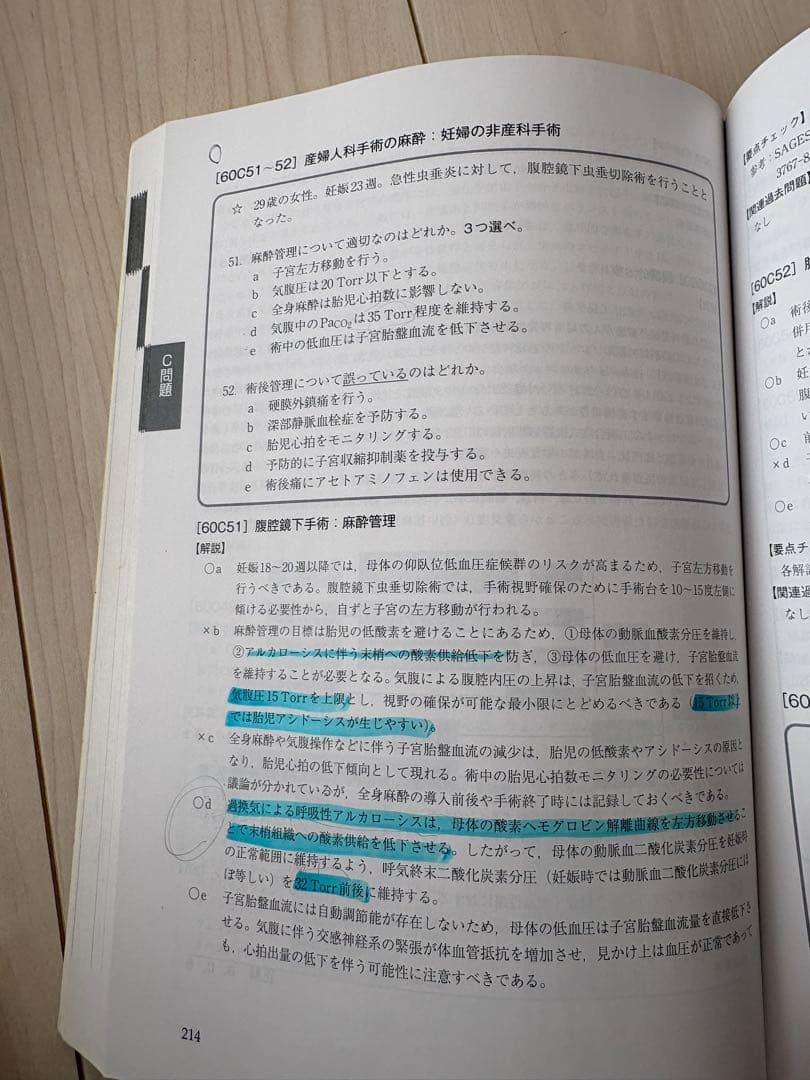 [60C51~52] 産婦人科手術の麻酔:妊婦の非産科手術
☆ 29歳の女性。妊娠23週。急性虫垂炎に対して,腹腔鏡下虫垂切除術を行うことと
なった。
51. 麻酔管理について適切なのはどれか。3つ選べ。
a 子宮左方移動を行う。
b 気腹圧は20 Torr以下とする。
c 全身麻酔は胎児心拍数に影響しない。
d 気腹中のPaCO2は35 Torr程度を維持する。
e 術中の低血圧は子宮胎盤血流を低下させる。
52. 術後管理について誤っているのはどれか。
a 硬膜外鎮痛を行う。
b 深部静脈血栓症を予防する。
c 胎児心拍をモニタリングする。
d 予防的に子宮収縮抑制薬を投与する。
e 術後痛にアセトアミノフェンは使用できる。
C問題
[60C51] 腹腔鏡下手術:麻酔管理
【解説】
○a 妊娠18~20週以降では,母体の仰臥位低血圧症候群のリスクが高まるため,子宮左方移動を
行うべきである。腹腔鏡下虫垂切除術では,手術視野確保のために手術台を10~15度左側に
傾ける必要性から,自ずと子宮の左方移動が行われる。
×b 麻酔管理の目標は胎児の低酸素を避けることにあるため,①母体の動脈血酸素分圧を維持し,
②アルカローシスに伴う末梢への酸素供給低下を防ぎ,③母体の低血圧を避け,子宮胎盤血流
を維持することが必要となる。気腹による腹腔内圧の上昇は,子宮胎盤血流の低下を招くため,
気腹圧15 Torrを上限とし,視野の確保が可能な最小限にとどめるべきである(15 Torr以上
では胎児アシドーシスが生じやすい)。
×c 全身麻酔や気腹操作などに伴う子宮胎盤血流の減少は,胎児の低酸素やアシドーシスの原因と
なり,胎児心拍の低下傾向として現れる。術中の胎児心拍数モニタリングの必要性については
議論が分かれているが,全身麻酔の導入前後や手術終了時には記録しておくべきである。
○d 過換気による呼吸性アルカローシスは,母体の酸素ヘモグロビン解離曲線を左方移動させるこ
とで末梢組織への酸素供給を低下させる。したがって,母体の動脈血二酸化炭素分圧を妊娠時
の正常範囲に維持するよう,呼気終末二酸化炭素分圧(妊娠時では動脈血二酸化炭素分圧にほ
ぼ等しい)を32 Torr前後に維持する。
○e 子宮胎盤血流には自動調節能が存在しないため,母体の低血圧は子宮胎盤血流量を直接低下さ
せる。気腹に伴う交感神経系の緊張が体血管抵抗を増加させ,見かけ上は血圧が正常であって
も,心拍出量の低下を伴う可能性に注意すべきである。
214
【要点チェック】
参考:SAGES
3767-8
【関連過去問題】
なし
[60C52]
【解説】
○a 術後
併用
○b 妊
腹
い
○c 前
×d 子
○e
【要点チ
各解
【関連過
なし
[60